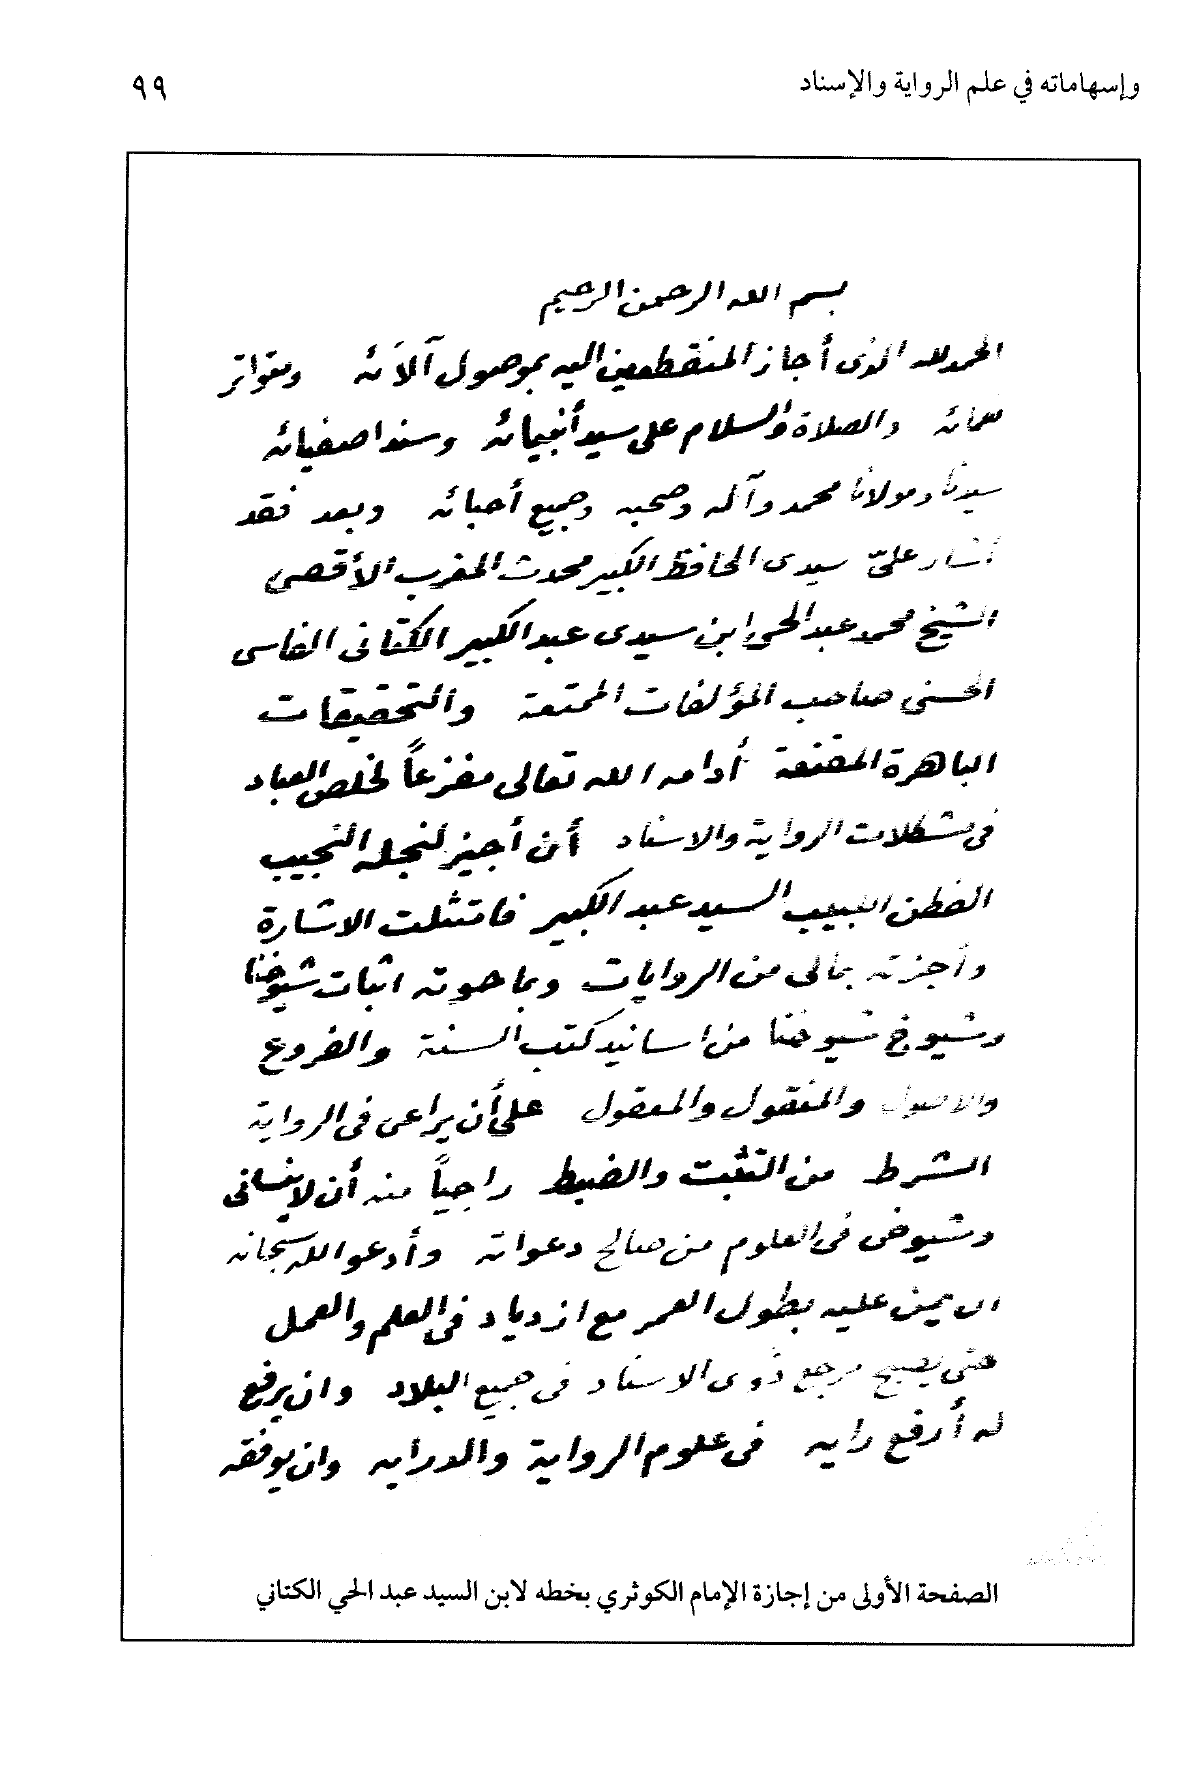 وإسهاماته في علم الرواية والإسناد
٩٩
بسم الله الرحمن الرحيم
الحمد لله الذى أجاز المنقطعين اليه بموصول آلائه ومتواتر
نعمائه والصلاة والسلام على سيد أنبيائه وسند اصفيائه
سيدنا ومولانا محمد وآله وصحبه وجميع أحبائه وبعد فقد
أشار علىّ سيدى الحافظ الكبير محدث المغرب الأقصى
الشيخ محمد عبد الحى ابن سيدى عبد الكبير الكتانى الفاسى
الحسنى صاحب المؤلفات الممتعة والتحقيقات
الباهرة المقنعة أدامه الله تعالى مفزعاً لخلص العباد
فى مشكلات الرواية والاسناد أن أجيز لنجله النجيب
الفطن اللبيب السيد عبد الكبير فامتثلت الاشارة
وأجزته بمالى من الروايات وبما حوته اثبات شيوخنا
وشيوخ شيوخنا من اسانيد كتب السنة والفروع
والاصول والمنقول والمعقول على أن يراعى فى الرواية
الشرط من التثبت والضبط راجياً منه أن لا ينسانى
وشيوخى فى العلوم من صالح دعواته وأدعو الله سبحانه
ان يمن عليه بطول العمر مع ازدياد فى العلم والعمل
حتى يصبح مرجع ذوى الاسناد فى جميع البلاد وان يرفع
له أرفع رايه فى علوم الرواية والدرايه وان يوفقه
الصفحة الأولى من إجازة الإمام الكوثري بخطه لابن السيد عبد الحي الكتاني